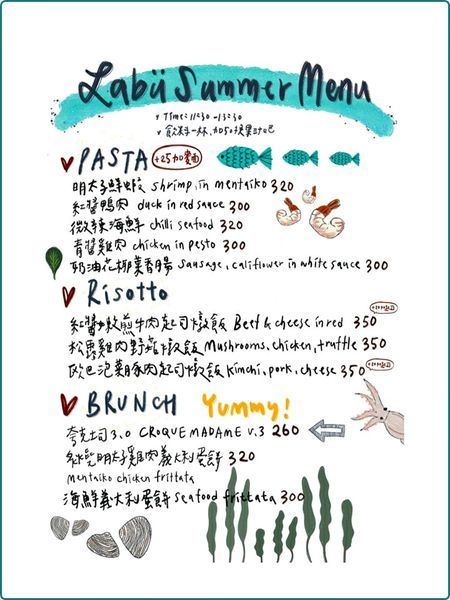 Labü Summer Menu
Time: 11:30 - 13:30
PASTA +25加麵
明太子鮮蝦 shrimp, in mentaiko 320
紅醬鴨肉 duck in red sauce 300
微辣海鮮 chilli seafood 320
青醬雞肉 chicken in pesto 300
奶油花椰菜香腸 Sausage, califlower in white sauce 300
Risotto
紅醬嫩煎牛肉起司燉飯 Beef & cheese in red 350
松露雞肉野菇燉飯 Mushrooms, chicken, truffle 350
歐巴泡菜豚肉起司燉飯 Kimchi, pork, cheese 350
BRUNCH Yummy!
夸克土司3.0 CROQUE MADAME V.3 260
明太子雞肉義大利蛋餅 320
mentaiko chicken frittata
海鮮義大利蛋餅 seafood frittata 300